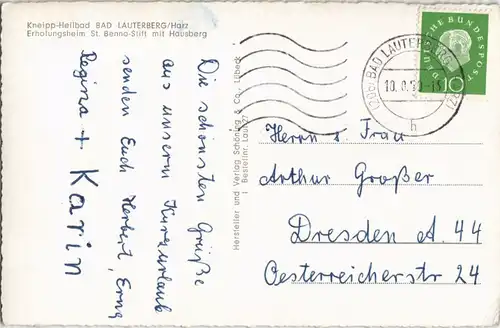 Kneipp-Heilbad BAD LAUTERBERG/Harz
Erholungsheim St. Benno-Stift mit Hausberg
Die schönsten Grüße
aus unserm Kurzurlaub
senden Euch Herbert, Erna
Regina + Karin
Hersteller und Verlag Schöning & Co., Lübeck
Bestellnr. Laut 27
(20b) BAD LAUTERBERG (HARZ)
h
DEUTSCHE BUNDESPOST
10
Herrn u. Frau
Arthur Großer
Dresden A. 44
Oesterreicherstr 24